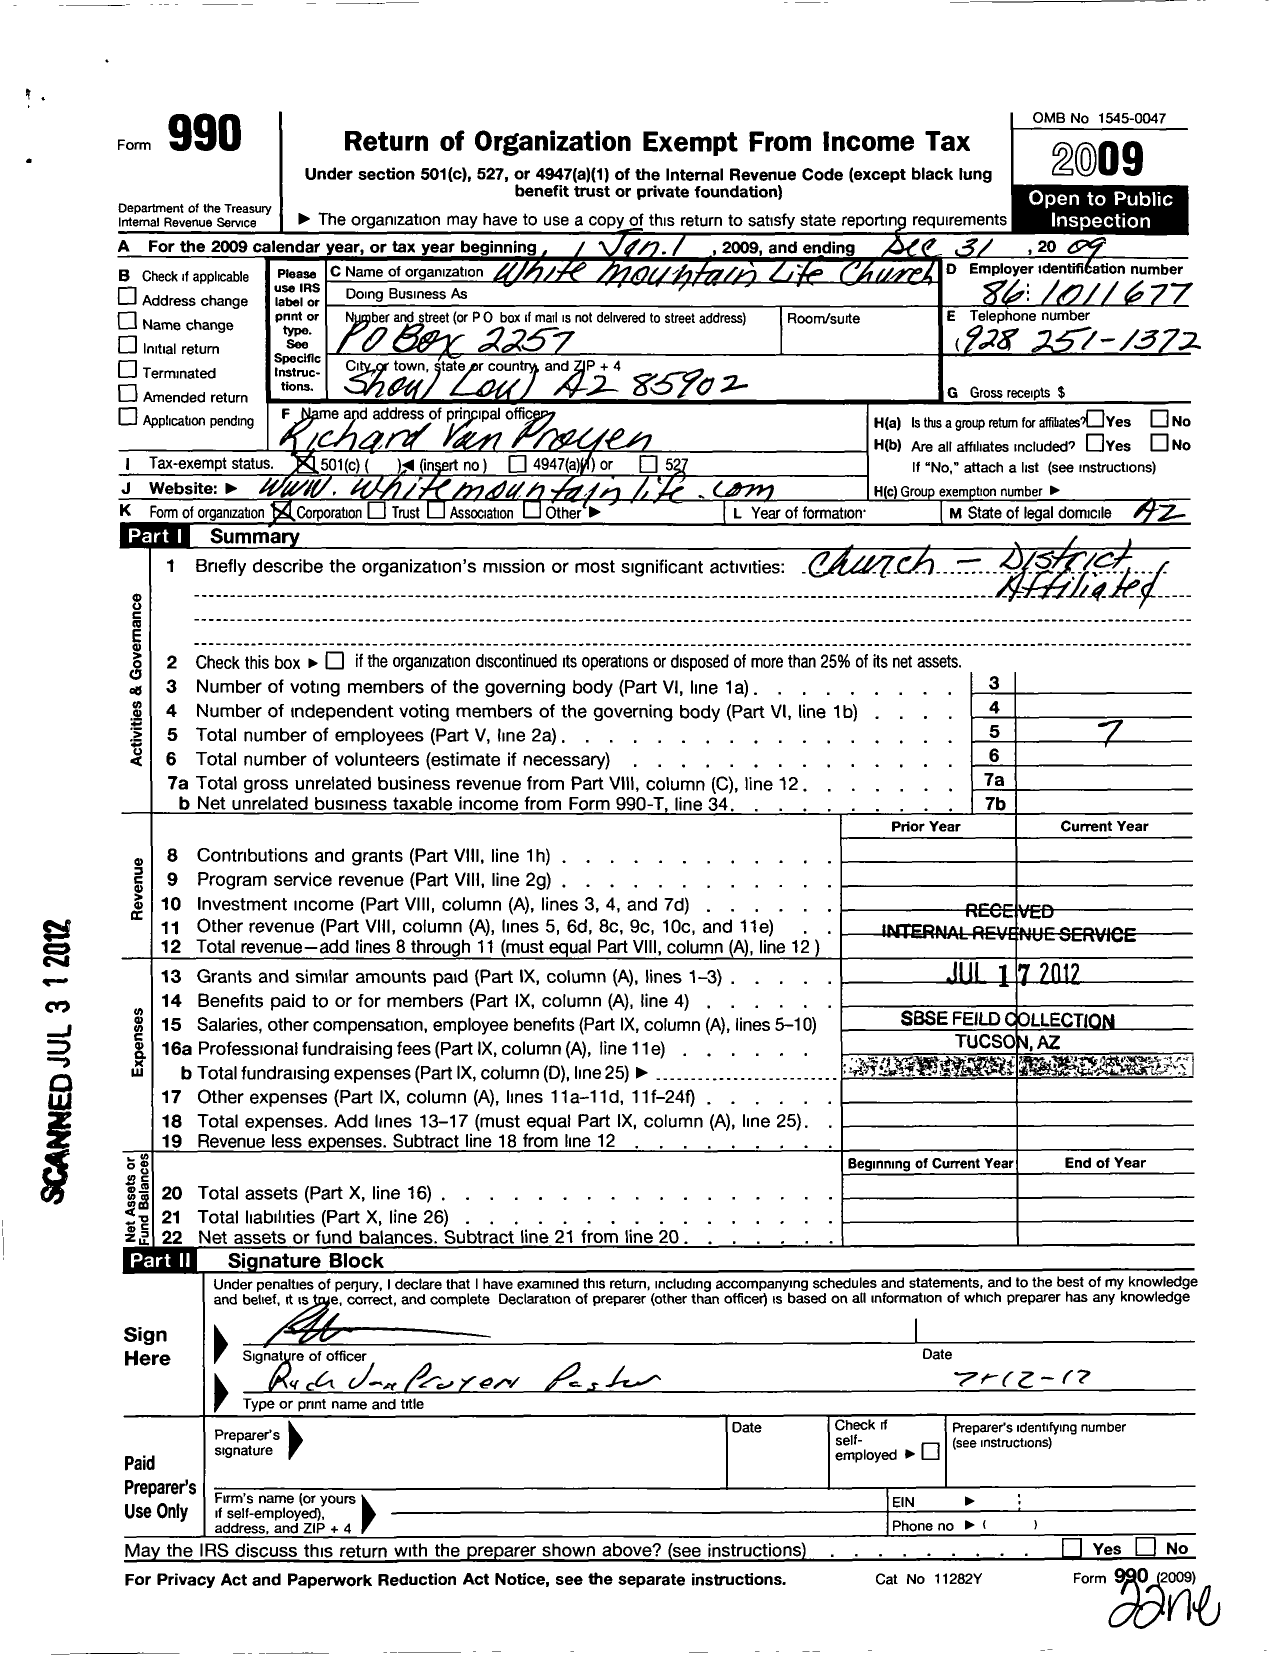 Form 990
Return of Organization Exempt From Income Tax
OMB No 1545-0047
2009
Under section 501(c), 527, or 4947(a)(1) of the Internal Revenue Code (except black lung
benefit trust or private foundation)
Open to Public
Inspection
Department of the Treasury
Internal Revenue Service
▶ The organization may have to use a copy of this return to satisfy state reporting requirements
A For the 2009 calendar year, or tax year beginning, 1 Jan. 1, 2009, and ending Dec 31, 20 09
B Check if applicable
Address change
Name change
Initial return
Terminated
Amended return
Application pending
Please
use IRS
label or
print or
type.
See
Specific
Instruc-
tions.
C Name of organization White Mountain Life Church
Doing Business As
Number and street (or P O box if mail is not delivered to street address)
Room/suite
PO Box 2257
City or town, state or country, and ZIP + 4
Show Low, AZ 85902
D Employer identification number
86 1011677
E Telephone number
(928 251-1372
G Gross receipts $
F Name and address of principal officer
Richard Van Proyen
H(a) Is this a group return for affiliates? Yes No
H(b) Are all affiliates included? Yes No
If "No," attach a list (see instructions)
H(c) Group exemption number ▶
I Tax-exempt status. 501(c) ( )◀ (insert no ) 4947(a)(1) or 527
J Website: ▶ www.whitemountainlife.com
K Form of organization Corporation Trust Association Other ▶
L Year of formation
M State of legal domicile AZ
Part I Summary
Activities & Governance
1 Briefly describe the organization's mission or most significant activities: Church – District
Affiliated
2 Check this box ▶ if the organization discontinued its operations or disposed of more than 25% of its net assets.
3 Number of voting members of the governing body (Part VI, line 1a) 3
4 Number of independent voting members of the governing body (Part VI, line 1b) 4
5 Total number of employees (Part V, line 2a) 5 7
6 Total number of volunteers (estimate if necessary) 6
7a Total gross unrelated business revenue from Part VIII, column (C), line 12 7a
b Net unrelated business taxable income from Form 990-T, line 34 7b
Prior Year Current Year
Revenue
8 Contributions and grants (Part VIII, line 1h)
9 Program service revenue (Part VIII, line 2g)
10 Investment income (Part VIII, column (A), lines 3, 4, and 7d)
11 Other revenue (Part VIII, column (A), lines 5, 6d, 8c, 9c, 10c, and 11e)
12 Total revenue—add lines 8 through 11 (must equal Part VIII, column (A), line 12 )
RECEIVED
INTERNAL REVENUE SERVICE
JUL 17 2012
SBSE FEILD COLLECTION
TUCSON, AZ
Expenses
13 Grants and similar amounts paid (Part IX, column (A), lines 1–3)
14 Benefits paid to or for members (Part IX, column (A), line 4)
15 Salaries, other compensation, employee benefits (Part IX, column (A), lines 5–10)
16a Professional fundraising fees (Part IX, column (A), line 11e)
b Total fundraising expenses (Part IX, column (D), line 25) ▶
17 Other expenses (Part IX, column (A), lines 11a–11d, 11f–24f)
18 Total expenses. Add lines 13–17 (must equal Part IX, column (A), line 25)
19 Revenue less expenses. Subtract line 18 from line 12
Beginning of Current Year End of Year
Net Assets or
Fund Balances
20 Total assets (Part X, line 16)
21 Total liabilities (Part X, line 26)
22 Net assets or fund balances. Subtract line 21 from line 20
SCANNED JUL 31 2012
Part II Signature Block
Under penalties of perjury, I declare that I have examined this return, including accompanying schedules and statements, and to the best of my knowledge
and belief, it is true, correct, and complete Declaration of preparer (other than officer) is based on all information of which preparer has any knowledge
Sign
Here
Signature of officer
Date
Rich Van Proyen Pastor 7-12-12
Type or print name and title
Paid
Preparer's
Use Only
Preparer's
signature
Date
Check if
self-
employed ▶
Preparer's identifying number
(see instructions)
Firm's name (or yours
if self-employed),
address, and ZIP + 4
EIN ▶
Phone no ▶ ( )
May the IRS discuss this return with the preparer shown above? (see instructions) Yes No
For Privacy Act and Paperwork Reduction Act Notice, see the separate instructions.
Cat No 11282Y
Form 990 (2009)